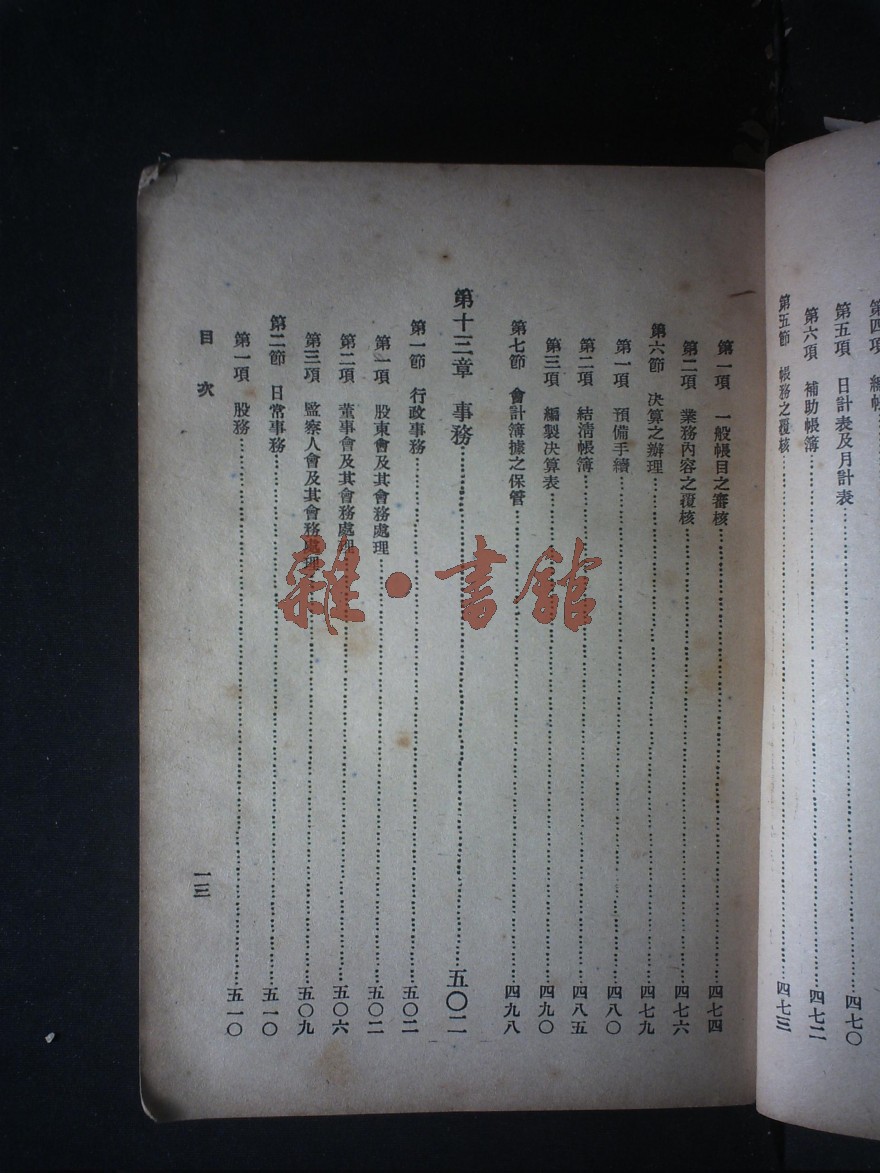 第五項 日計表及月計表……四七〇
第六項 補助帳簿……四七二
第五節 帳務之覆核……四七三
第一項 一般帳目之審核……四七四
第二項 業務內容之覆核……四七六
第六節 決算之辦理……四七九
第一項 預備手續……四八〇
第二項 結清帳簿……四八五
第三項 編製決算表……四九〇
第七節 會計簿據之保管……四九八
第十三章 事務……五〇二
第一節 行政事務……五〇二
第一項 股東會及其會務處理……五〇二
第二項 董事會及其會務處理……五〇六
第三項 監察人會及其會務處理……五〇九
第二節 日常事務……五一〇
第一項 股務……五一〇
目次
一三
雜·書館